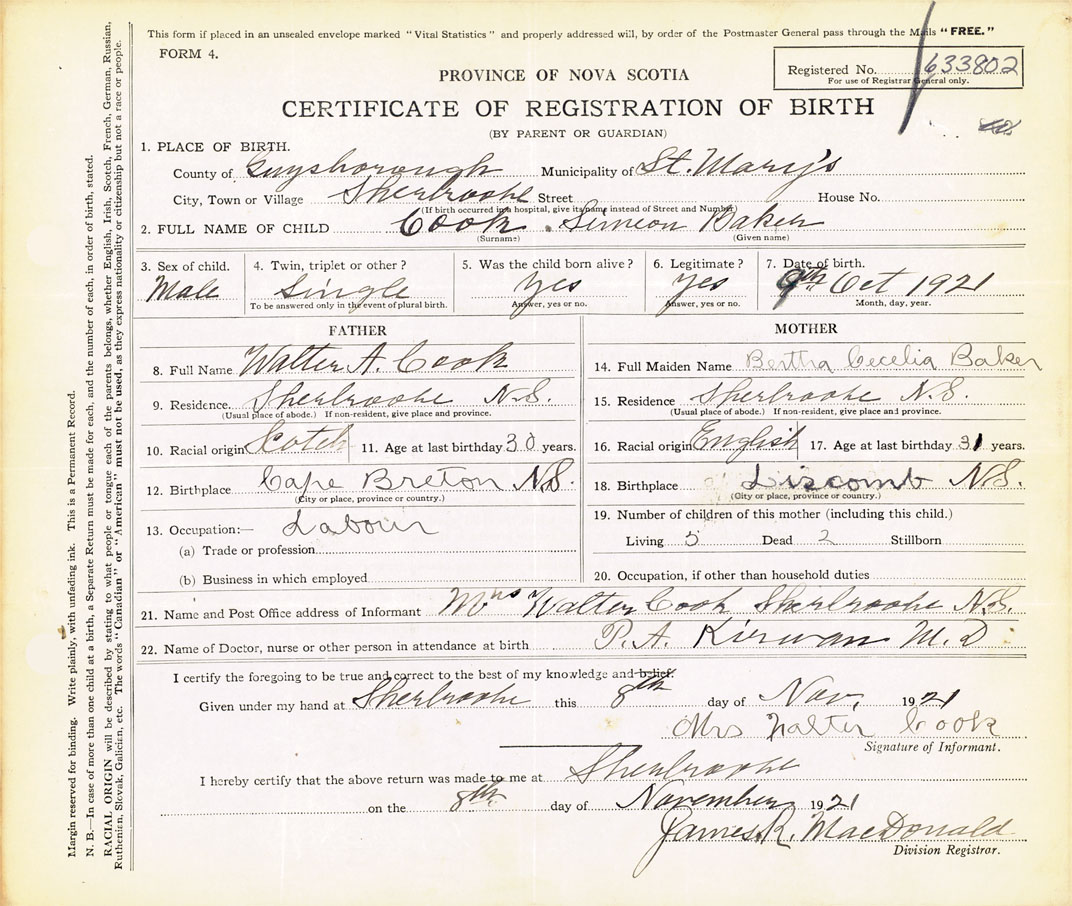 This form if placed in an unsealed envelope marked "Vital Statistics" and properly addressed will, by order of the Postmaster General pass through the Mails "FREE."
FORM 4.
Registered No. 633802
For use of Registrar General only.
PROVINCE OF NOVA SCOTIA
CERTIFICATE OF REGISTRATION OF BIRTH
(BY PARENT OR GUARDIAN)
1. PLACE OF BIRTH.
County of Guysborough Municipality of St. Mary's
City, Town or Village Sherbrooke Street House No.
(If birth occurred in a hospital, give its name instead of Street and Number)
2. FULL NAME OF CHILD Cook Simeon Baker
(Surname) (Given name)
3. Sex of child. 4. Twin, triplet or other? 5. Was the child born alive? 6. Legitimate? 7. Date of birth.
Male Single Yes Yes 9th Oct 1921
To be answered only in the event of plural birth. Answer, yes or no. Answer, yes or no. Month, day, year.
FATHER
8. Full Name Walter A. Cook
9. Residence. Sherbrooke N.S.
(Usual place of abode.) If non-resident, give place and province.
10. Racial origin Scotch 11. Age at last birthday 30 years.
12. Birthplace Cape Breton N.S.
(City or place, province or country.)
13. Occupation:— Labour
(a) Trade or profession
(b) Business in which employed
MOTHER
14. Full Maiden Name Bertha Cecelia Baker
15. Residence Sherbrooke N.S.
(Usual place of abode.) If non-resident, give place and province.
16. Racial origin English 17. Age at last birthday 31 years.
18. Birthplace Liscomb N.S.
(City or place, province or country.)
19. Number of children of this mother (including this child.)
Living 5 Dead 2 Stillborn
20. Occupation, if other than household duties
21. Name and Post Office address of Informant Mrs Walter Cook Sherbrooke N.S.
22. Name of Doctor, nurse or other person in attendance at birth P. A. Kirwan M.D
I certify the foregoing to be true and correct to the best of my knowledge and belief.
Given under my hand at Sherbrooke this 8th day of Nov. 1921
Mrs Walter Cook
Signature of Informant.
I hereby certify that the above return was made to me at Sherbrooke
on the 8th day of November 1921
James R. MacDonald
Division Registrar.
Margin reserved for binding. Write plainly, with unfading ink. This is a Permanent Record.
N. B.—In case of more than one child at a birth, a Separate Return must be made for each, and the number of each, in order of birth, stated.
RACIAL ORIGIN will be described by stating to what people or tongue each of the parents belongs, whether English, Irish, Scotch, French, German, Russian,
Ruthenian, Slovak, Galician, etc. The words "Canadian" or "American" must not be used, as they express nationality or citizenship but not a race or people.